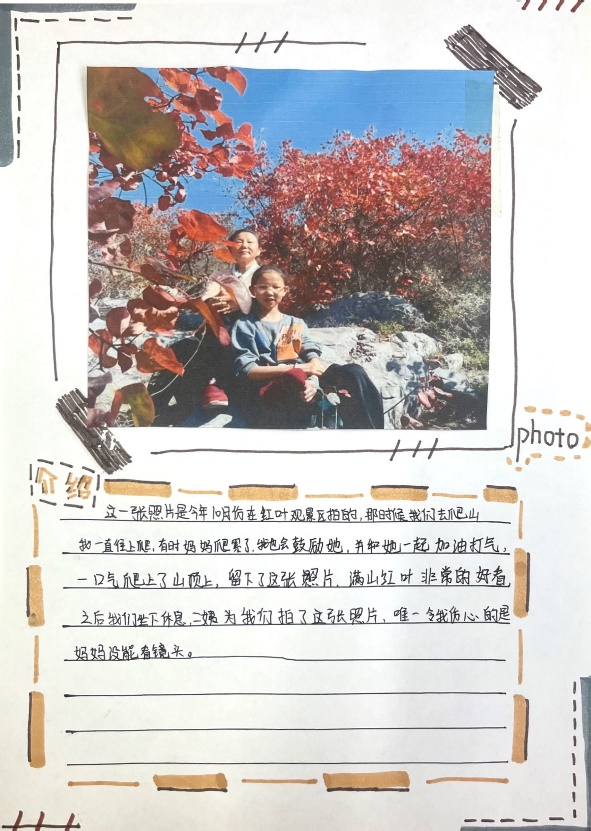 photo
介绍
这一张照片是今年10月份在红叶观景区拍的，那时候我们去爬山
我一直往上爬，有时妈妈爬累了，我也会鼓励她，并和她一起加油打气，
一口气爬上了山顶上，留下了这张照片，满山红叶非常的好看
之后我们坐下休息，二姨为我们拍了这张照片，唯一令我伤心的是
妈妈没能看镜头。